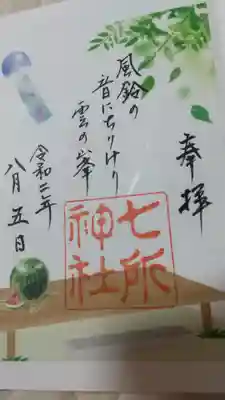 奉拝
風鈴の
音にちりけり
雲の峯
令和二年
八月五日
七所
神社